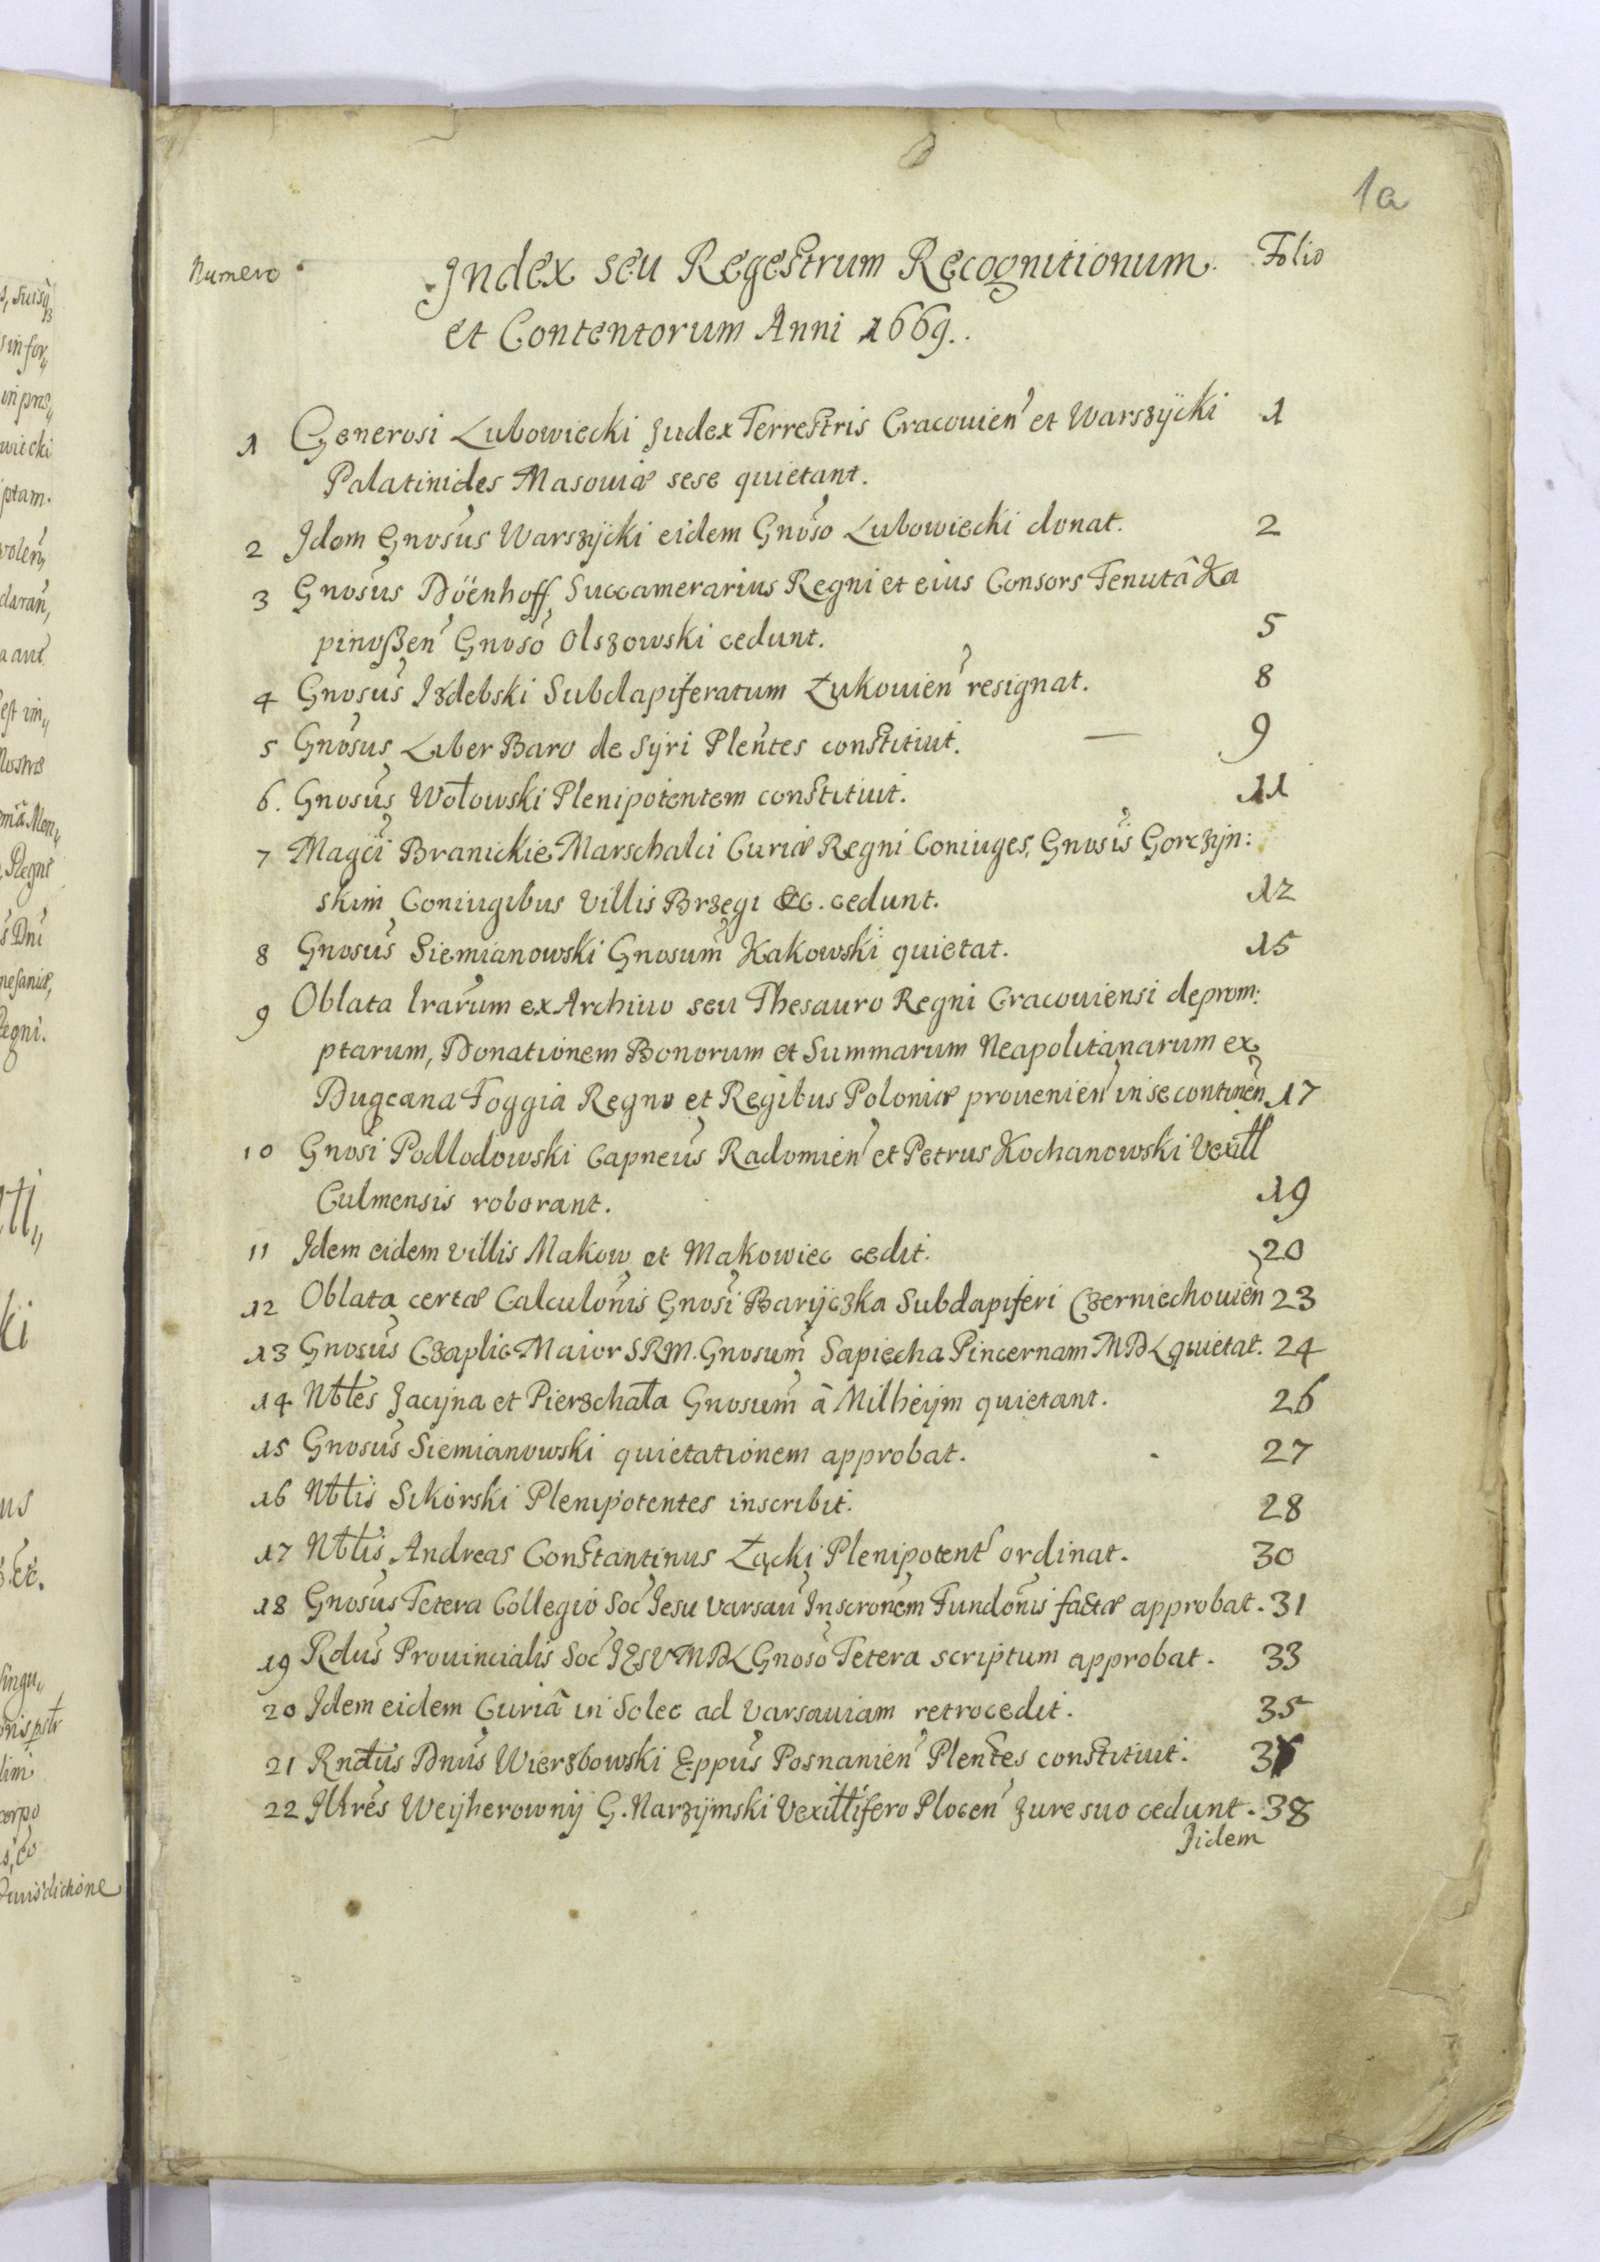 1a
Numero Index seu Regestrum Recognitionum Folio
et Contentorum Anni 1669.
1 Generosi Lubowiecki Judex Terrestris Cracouien et Warszÿcki 1
Palatinides Masouiæ sese quietant.
2 Idem Gnosus Warszÿcki eidem Gnoso Lubowiecki donat. 2
3 Gnosus Döenhoff Succamerarius Regni et eius Consors Tenutâ Ka
pinoßen Gnoso Olszowski cedunt. 5
4 Gnosus Izdebski Subdapiferatum Łukouien resignat. 8
5 Gnosus Liber Baro de Syri Plentes constituit. — 9
6. Gnosus Wołowski Plenipotentem constituit. 11
7 Magci Branickie Marschalci Curiæ Regni Coniuges, Gnosis Gorczÿn:
skim Coniugibus Villis Brzegi &c. cedunt. 12
8 Gnosus Siemianowski Gnosum Kakowski quietat. 15
9 Oblata lrarum ex Archiuo seu Thesauro Regni Cracouiensi deprom:
ptarum, Donationem Bonorum et Summarum Neapolitanarum ex
Dugeana Foggia Regno et Regibus Poloniæ prouenien in se continen 17
10 Gnosi Podlodowski Capneus Radomien et Petrus Kochanowski Vexill
Culmensis roborant. 19
11 Idem eidem villis Makow et Makowiec cedit. 20
12 Oblata certæ Calculonis Gnosi Barÿczka Subdapiferi Czerniechouien 23
13 Gnosus Czaplic Maior SRM. Gnosum Sapiecha Pincernam MDL quietat. 24
14 Nbłes Jacyna et Pierzchała Gnosum â Milheÿm quietant. 26
15 Gnosus Siemianowski quietationem approbat. 27
16 Nbłis Sikorski Plenipotentes inscribit. 28
17 Nbłis Andreas Constantinus Łącki Plenipotent ordinat. 30
18 Gnosus Tetera Collegio Soc Jesu Varsau Inscronem Fundonis factæ approbat. 31
19 Rdus Prouincialis Soc JESV MDL Gnoso Tetera scriptum approbat. 33
20 Idem eidem Curiâ in Solec ad Varsauiam retrocedit. 35
21 Rndus Dnus Wierzbowski Eppus Posnanien Plentes constituit.
22 Illres Weÿherownÿ G. Narzÿmski Vexillifero Plocen Jure suo cedunt. 38
Iidem